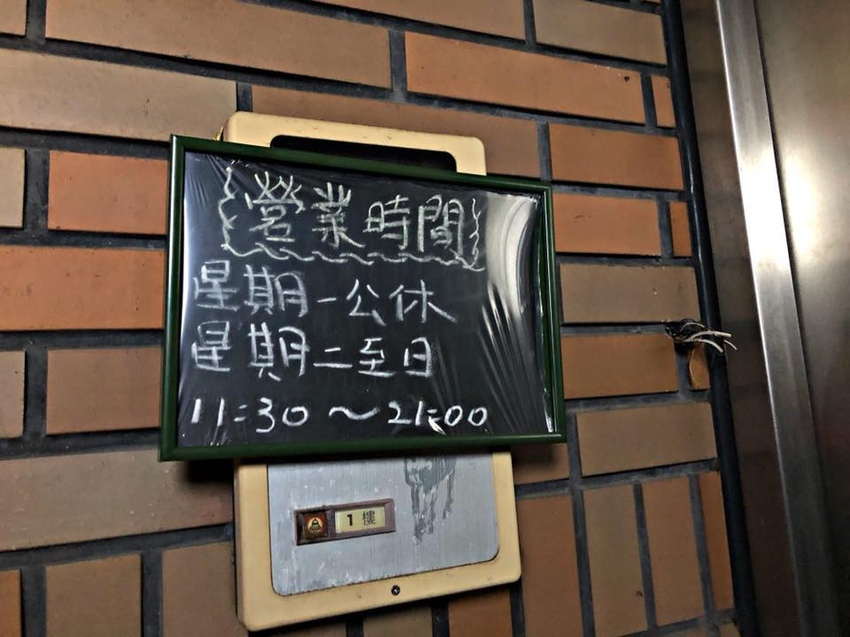 營業時間
星期一公休
星期二至日
11:30～21:00
1 樓